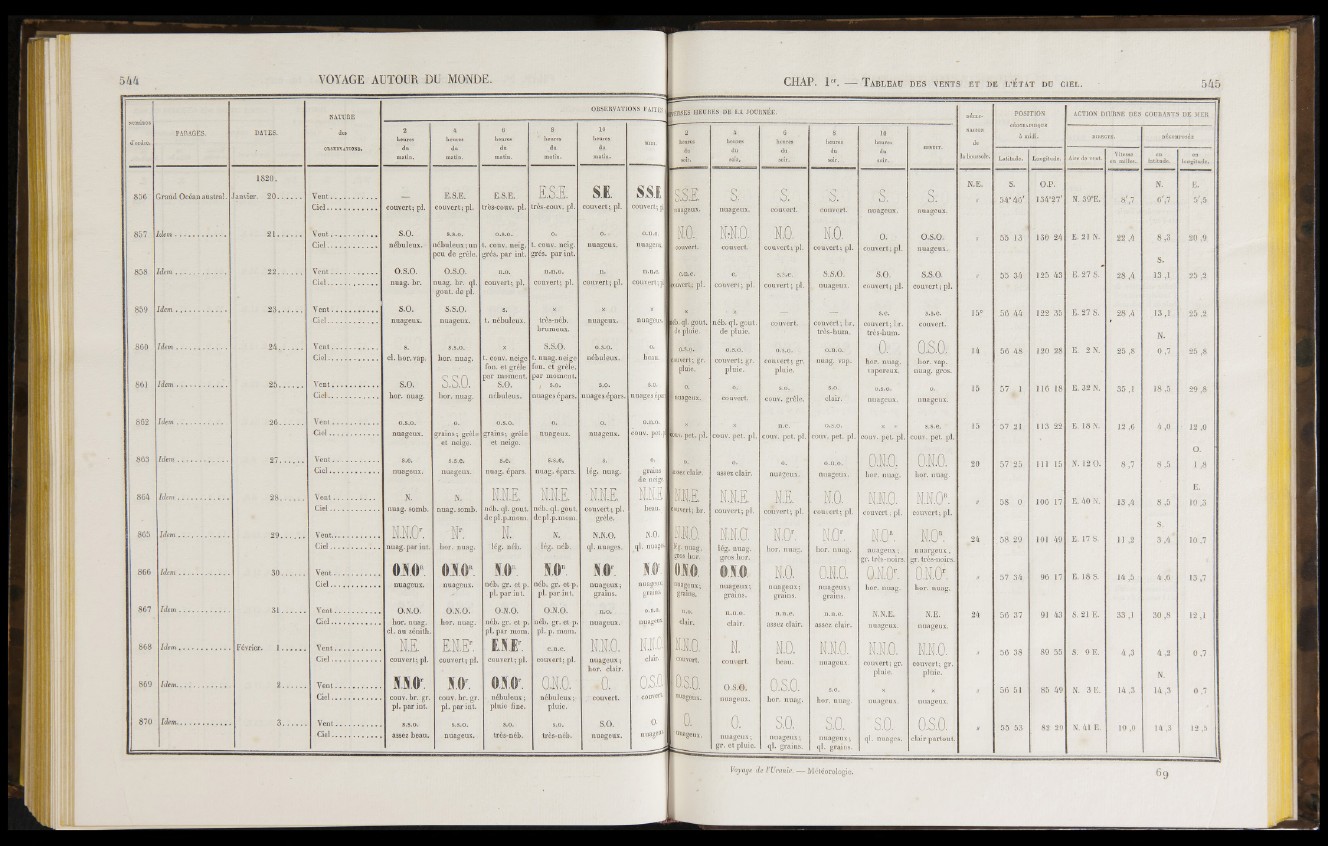 544 VOYAGE AUTOUR DU MONDE.
NUMÉROS d'ordre. PARAGES. DATES. NATURE des OBSERVATIONS. OBSERVATIONS FAITES
2 heures du matin. 4 heures du matin. 6 heures du matin. 8 heures du matin. 10 heures du matin. MIDI.
1820.
856 Grand Océan austral. Janvier. 20...... Vent........... — E.S.E. E.S.E. E.S.E. S.E. S.S.E.
Ciel............ couvert; pl. couvert; pl. très-couv. pl. très-couv. pl. couvert; pl. couvert;
857 Idem............. 21...... Vent........... S.O. s.s.o. o.s.o. o. o. o.n.o.
Ciel............ nébuleux. nébuleux; un t. couv. neig. t. couv. neig. nuageux. nuageux.
peu de grêle. grés. par int. grés. par int.
858 Idem............. 22...... Vent........... O.S.O. O.S.O. n.o. n.n.o. n. n.n.e.
Ciel............ nuag. br. nuag. br. ql. couvert; pl. couvert; pl. couvert; pl. couvert;
gout. de pl.
859 Idem............. 23...... Vent........... S.O. S.S.O. s. × × ×
Ciel............ nuageux. nuageux. t. nébuleux. très-néb. nuageux. nuageux.
brumeux.
860 Idem............. 24...... Vent........... s. s.s.o. × S.S.O. o.s.o. o.
Ciel............ cl. hor. vap. hor. nuag. t. conv. neige t. nuag. neige nébuleux. beau.
fon. et grêle fon. et grêle,
par moment. par moment.
861 Idem............. 25...... Vent........... S.O. S.S.O. S.O. s.o. s.o. s.o.
Ciel............ hor. nuag. hor. nuag. nébuleux. nuages épars. nuages épars. nuages épa
862 Idem............. 26...... Vent........... o.s.o. o. o.s.o. o. o. o.n.o.
Ciel............ nuageux. grains; grêle grains; grêle nuageux. nuageux. couv. pet.
et neige. et neige.
863 Idem............. 27...... Vent........... s.e. s.s.e. s.e. s.s.e. s. o.
Ciel............ nuageux. nuageux. nuag. épars. nuag. épars. lég. nuag. grains
de neige
864 Idem............. 28...... Vent........... N. N. N.N.E. N.N.E. N.N.E. N.N.E.
Ciel............ nuag. somb. nuag. somb. néb. ql. gout. néb. ql. gout. couvert; pl. beau.
de pl. p.mom. de pl. p.mom. grêle.
865 Idem............. 29...... Vent........... N.N.Or. Nr. N. N. N.N.O. N.O.
Ciel............ nuag. par int. hor. nuag. lég. néb. lég. néb. ql. nuages. ql. nuages
866 Idem............. 30...... Vent........... O.N.On. O.N.On. N.On. N.On. N.Or. N.O.
Ciel............ nuageux. nuageux. néb. gr. et p. néb. gr. et p. nuageux; nuageux
pl. par int. pl. par int. grains. grains.
867 Idem............. 31...... Vent........... O.N.O. O.N.O. O.N.O. O.N.O. n.o. n.n.o.
Ciel............ hor. nuag. hor. nuag. néb. gr. et p. néb. gr. et p. nuageux. nuageux
cl. au zénith. pl. par mom. pl. p. mom.
868 Idem............. Février. 1...... Vent........... N.E. E.N.Er. E.N.Er. e.n.e. N.N.O. N.N.O.
Ciel............ couvert; pl. couvert; pl. couvert; pl. couvert; pl. nuageux; clair.
hor. clair.
869 Idem............. 2...... Vent........... N.N.Or. N.Or. O.N.Or. O.N.O. O. O.S.O.
Ciel............ couv. br. gr. couv. br. gr. nébuleux; nébuleux; couvert. couvert
pl. par int. pl. par int. pluie fine. pluie.
870 Idem............. 3...... Vent........... s.s.o. s.s.o. s.o. s.o. S.O. O.
Ciel............ assez beau. nuageux. très-néb. très-néb. nuageux. nuageux
CHAP. Ier. — TABLEAU DES VENTS ET DE L'ÉTAT DU CIEL. 545
HEURES DE LA JOURNÉE. de la boussole. POSITION à midi. ACTION DIURNE DES COURANTS DE MER
2 heures du soir. 4 heures du soir. 6 heures du soir. 8 heures du soir. 10 heures du soir. MINUIT. Latitude. Longitude. Aire du vent. Vitesse en milles. en latitude. en longitude.
N.E. S. O.P. N. E.
S.S.E. S. S. S. S. S. 54°40' 134°27' N. 39°E. 8',7 6',7 5',5
nuageux. nuageux. couvert. couvert. nuageux. nuageux.
N.O. N.N.O. N.O. N.O. O. O.S.O. 55 13 130 24 E. 21 N. 22 ,4 8 ,3 20 ,9
couvert. couvert. couvert; pl. couvert; pl. couvert; pl. nuageux.
S.
e.n.e. e. s.s.e. S.S.O. S.O. S.S.O. 55 34 125 43 E. 27 S. 28 ,4 13 ,1 25 ,2
couvert; pl. couvert; pl. couvert; pl. nuageux. couvert; pl. couvert; pl.
× × — — s.e. s.s.e. 15° 56 44 122 35 E. 27 S. 28 ,4 13 ,1 25 ,2
néb. ql. gout. néb. ql. gout. couvert. couvert; br. couvert; br. couvert.
de pluie. de pluie. très-hum. très-hum.
N.
o.n.o. o.n.o. o.s.o. o.n.o. O. O.S.O. 14 56 48 120 28 E. 2 N. 25 ,8 0 ,7 25 ,8
couvert; gr. couvert; gr. couvert; gr. nuag. vap. hor. nuag. hor. vap.
pluie. pluie. pluie. vaporeux. nuag. gros.
o. o. s.o. s.o. o.s.o. o. 15 57 1 116 18 E. 32 N. 35 ,1 18 ,5 29 ,8
nuageux. couvert. couv. grêle. clair. nuageux. nuageux.
× × n.e. o.s.o. × s.s.e. 15 57 21 113 22 E. 18 N. 12 ,6 4 ,0 12 ,0
couv. pet. pl. couv. pet. pl. couv. pet. pl. couv. pet. pl. couv. pet. pl. couv. pet. pl.
O.
o. o. o. o.n.o. O.N.O. O.N.O. 20 57 25 111 15 N. 12 O. 8 ,7 8 ,5 1 ,8
assez clair. assez clair. nuageux. nuageux. hor. nuag. hor. nuag.
E.
N.N.E. N.N.E. N.E. N.O. N.N.O. N.N.On. 58 0 106 17 E. 40 N. 13 ,4 8 ,5 10 ,3
couvert; br. couvert; pl. couvert; pl. couvert; pl. couvert; pl. couvert; pl.
S.
N.N.O. N.N.O. N.Or N.Or N.On N.On 24 58 29 101 49 E. 17 S. 11 ,2 3 ,4 10 ,7
lég. nuag. lég. nuag. hor. nuag. hor. nuag. nuageux; nuageux;
gros hor. gros hor. gr. très-noirs. gr. très-noirs.
O.N.O. O.N.O. N.O. O.N.O. O.N.Or O.N.Or. 57 34 96 17 E. 18 S. 14 ,5 4 ,6 13 ,7
nuageux; nuageux; nuageux; nuageux; hor. nuag. hor. nuag.
grains. grains. grains. grains.
n.o. n.n.o. n.n.e. n.n.o. N.N.E. N.E. 24 56 37 91 43 S. 21 E. 33 ,1 30 ,8 12 ,1
clair. clair. assez clair. assez clair. nuageux. nuageux.
N.N.O. N. N.O. N.N.O. N.N.O. N.N.O. 56 38 89 55 S. 9 E. 4 ,3 4 ,2 0 ,7
couvert. couvert. beau. nuageux. couvert; gr. couvert; gr.
pluie. pluie.
N.
O.S.O. O.S.O. O.S.O. s.o. × × 56 51 85 49 N. 3 E. 14 ,3 14 ,3 0 ,7
nuageux. nuageux. hor. nuag. hor. nuag. nuageux. nuageux.
O. O. S.O. S.O. S.O. O.S.O. 55 53 82 29 N. 41 E. 19 ,0 14 ,3 12 ,5
nuageux. nuageux; nuageux; nuageux; ql. nuages. clair partout.
gr. et pluie. ql. grains. ql. grains.
Voyage de l'Uranie. — Météorologie. 69